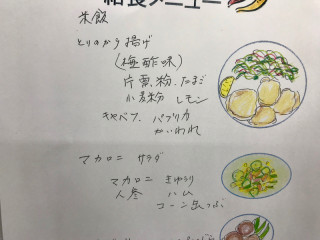 給食メニュー
米飯
とりのから揚げ
(梅酢味)
片栗粉、たまご
小麦粉 レモン
キャベツ パプリカ
かいわれ
マカロニ サラダ
マカロニ きゅうり
人参 ハム
コーン缶つぶ